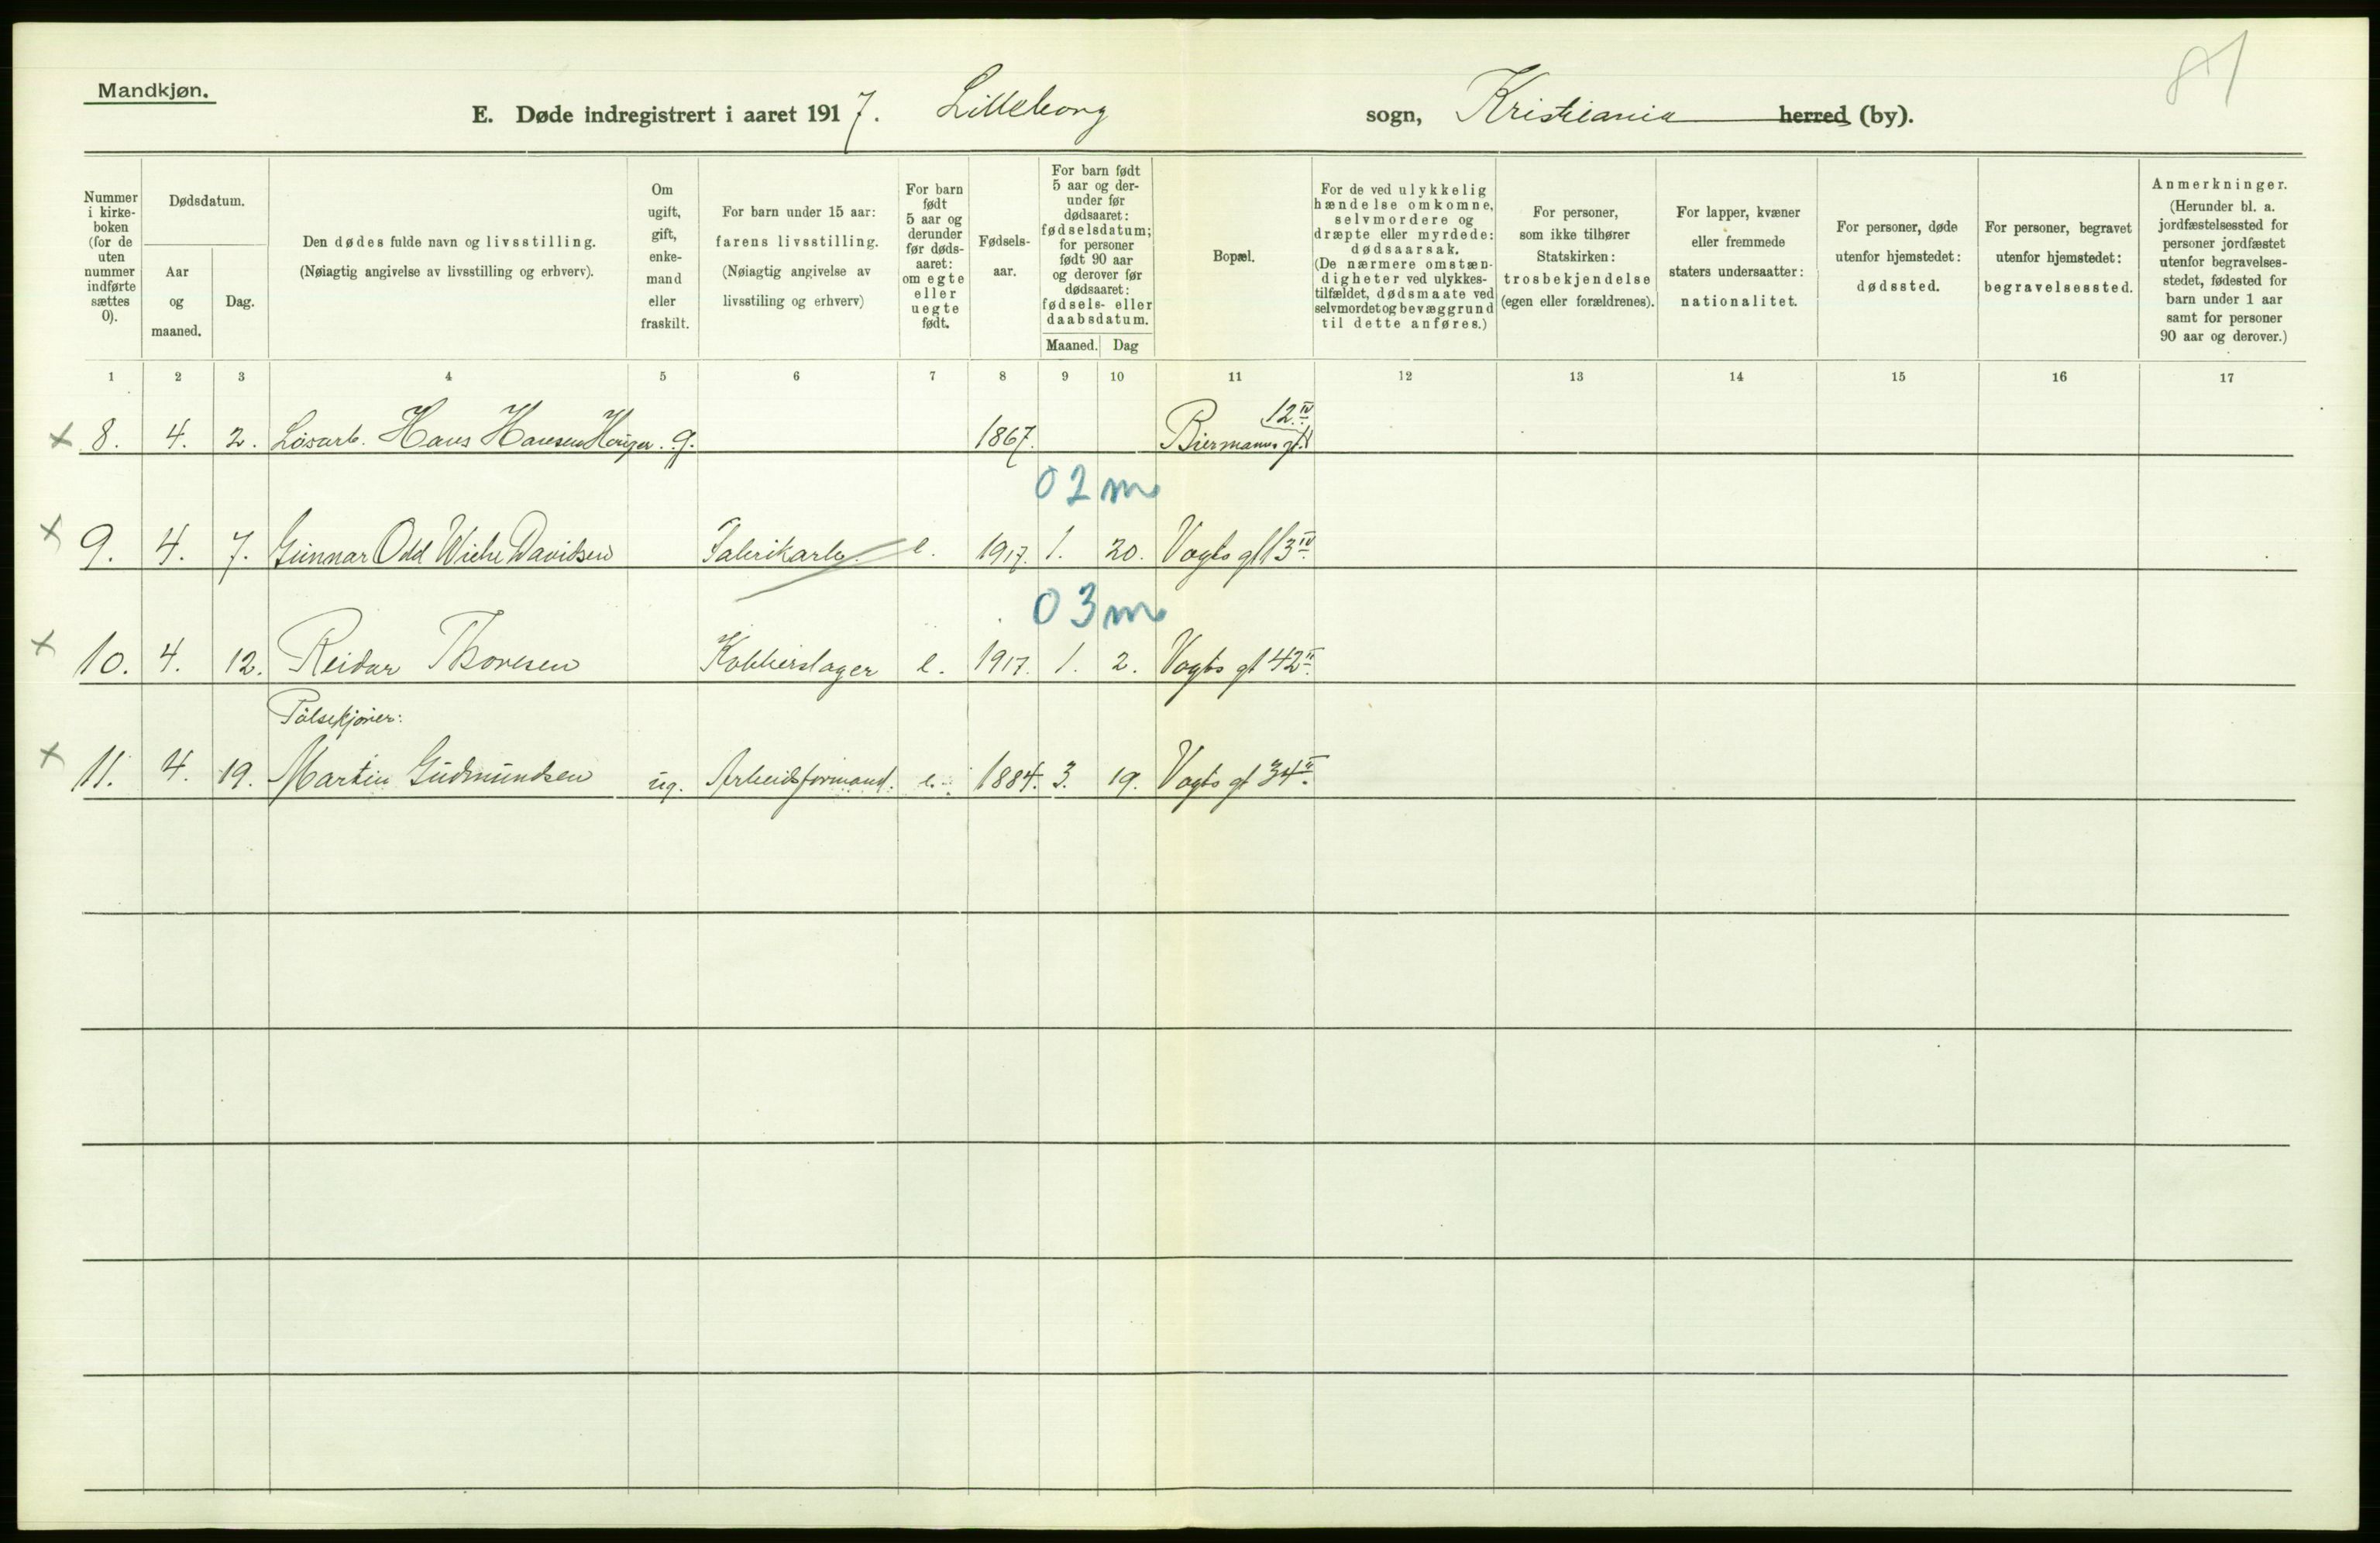 81
Mandkjøn.
E. Døde indregistrert i aaret 1917. Lilleborg sogn, Kristiania herred (by).
Nummer i kirkeboken (for de uten nummer indførte sættes 0).
Dødsdatum.
Aar og maaned.
Dag.
Den dødes fulde navn og livsstilling.
(Nøiagtig angivelse av livsstilling og erhverv).
Om ugift, gift, enkemand eller fraskilt.
For barn under 15 aar:
farens livsstilling.
(Nøiagtig angivelse av livsstiling og erhverv)
For barn født 5 aar og derunder før dødsaaret: om egte eller uegte født.
Fødselsaar.
For barn født 5 aar og derunder før dødsaaret: fødselsdatum; for personer født 90 aar og derover før dødsaaret: fødsels- eller daabsdatum.
Maaned. Dag
Bopæl.
For de ved ulykkelig hændelse omkomne, selvmordere og dræpte eller myrdede: dødsaarsak. (De nærmere omstændigheter ved ulykkestilfældet, dødsmaate ved selvmordet og bevæggrund til dette anføres.)
For personer, som ikke tilhører Statskirken: trosbekjendelse (egen eller forældrenes).
For lapper, kvæner eller fremmede staters undersaatter: nationalitet.
For personer, døde utenfor hjemstedet: dødssted.
For personer, begravet utenfor hjemstedet: begravelsessted.
Anmerkninger.
(Herunder bl. a. jordfæstelsessted for personer jordfæstet utenfor begravelsesstedet, fødested for barn under 1 aar samt for personer 90 aar og derover.)
1 2 3 4 5 6 7 8 9 10 11 12 13 14 15 16 17
x 8. 4. 2. Løsarb. Hans Hansen g. 1867. Biermanns gt. 12 IV
02 m
x 9. 4. 7. Gunnar Odd Wiche Davidsen Fabrikarb. e. 1917. 1. 20. Vogts gt 13 IV
03 m
x 10. 4. 12. Reidar Thoresen Kobberslager e. 1917. 1. 2. Vogts gt 42 II
Pølsekjører:
x 11. 4. 19. Martin Gudmundsen ug. Arbeidsformand. e. 1884. 3. 19. Vogts gt 34 II